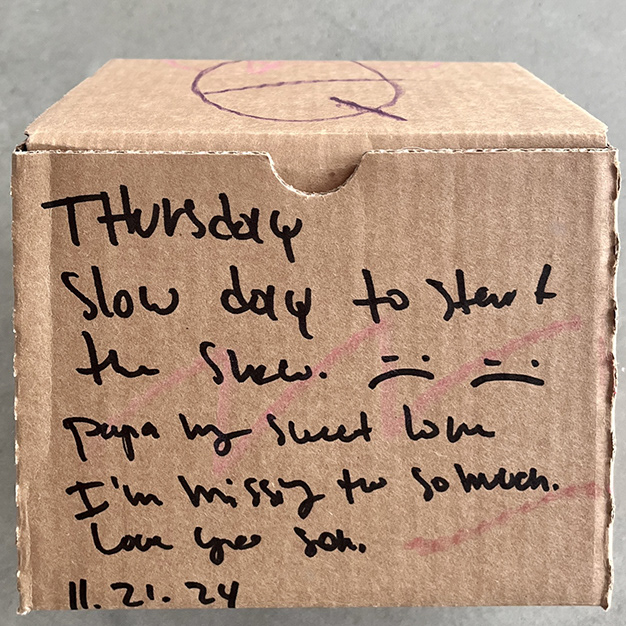 Thursday
Slow day to start
the show.
papa my sweet love
I'm missing you so much.
Love you son.
11.21.24